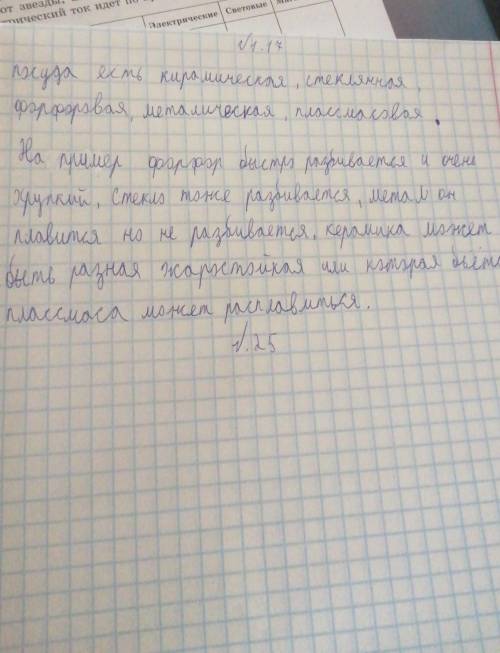 от звезды,
трический ток идет по
Электрические
Световые
№1.17
посуда есть кирамическая, стеклянная,
форфоровая, металическая, плассмасовая.
На пример форфор быстро разбивается и очень
хрупкий, стекло тоже разбивается, метал он
плавится но не разбивается, керамика может
быть разная жаростойкая или которая бьётс
плассмаса может расплавиться.
№.25